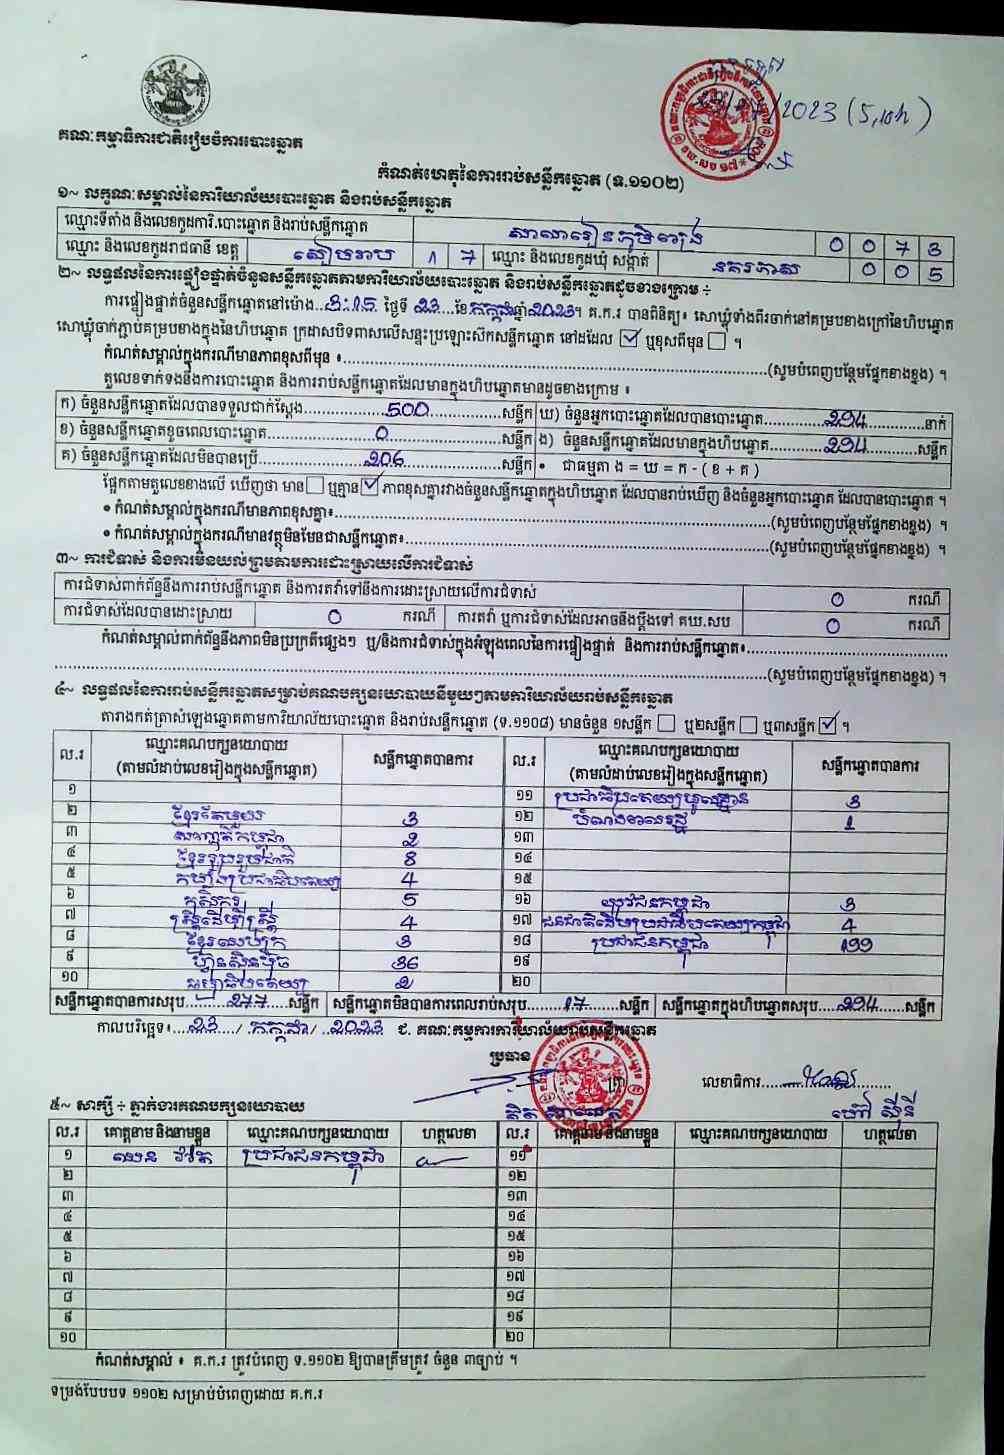 គណៈកម្មាធិការជាតិរៀបចំការបោះឆ្នោត
2023 (5,10h)
កំណត់ហេតុនៃការរាប់សន្លឹកឆ្នោត (ទ.១១០២)
១~ លក្ខណៈសម្គាល់នៃការិយាល័យបោះឆ្នោត និងរាប់សន្លឹកឆ្នោត
ឈ្មោះទីតាំង និងលេខកូដការិ.បោះឆ្នោត និងរាប់សន្លឹកឆ្នោត សាលារៀនភូមិ 0 0 7 3
ឈ្មោះ និងលេខកូដរាជធានី ខេត្ត សៀមរាប 1 7 ឈ្មោះ និងលេខកូដឃុំ សង្កាត់ នគរភាស 0 0 5
២~ លទ្ធផលនៃការផ្ទៀងផ្ទាត់ចំនួនសន្លឹកឆ្នោតតាមការិយាល័យបោះឆ្នោត និងរាប់សន្លឹកឆ្នោតដូចខាងក្រោម ÷
ការផ្ទៀងផ្ទាត់ចំនួនសន្លឹកឆ្នោតនៅម៉ោង..3:15 ថ្ងៃទី 23...ខែ កក្កដា ឆ្នាំ 2023។ គ.ក.រ បានពិនិត្យ៖ សោឃ្លុំទាំងពីរចាក់នៅគម្របខាងក្រៅនៃហិបឆ្នោត
សោឃ្លុំចាក់ភ្ជាប់គម្របខាងក្នុងនៃហិបឆ្នោត ក្រដាសបិទពាសលើសន្ទះប្រឡោះស៊កសន្លឹកឆ្នោត នៅដដែល ☑ ឬខុសពីមុន ☐ ។
កំណត់សម្គាល់ក្នុងករណីមានភាពខុសពីមុន ៖...(សូមបំពេញបន្ថែមផ្នែកខាងខ្នង) ។
តួលេខទាក់ទងនឹងការបោះឆ្នោត និងការរាប់សន្លឹកឆ្នោតដែលមានក្នុងហិបឆ្នោតមានដូចខាងក្រោម ៖
ក) ចំនួនសន្លឹកឆ្នោតដែលបានទទួលជាក់ស្ដែង...500...សន្លឹក ឃ) ចំនួនអ្នកបោះឆ្នោតដែលបានបោះឆ្នោត...294...នាក់
ខ) ចំនួនសន្លឹកឆ្នោតខូចពេលបោះឆ្នោត...0...សន្លឹក ង) ចំនួនសន្លឹកឆ្នោតដែលមានក្នុងហិបឆ្នោត...294...សន្លឹក
គ) ចំនួនសន្លឹកឆ្នោតដែលមិនបានប្រើ...206...សន្លឹក • ជាធម្មតា ង = ឃ = ក - ( ខ + គ )
ផ្អែកតាមតួលេខខាងលើ ឃើញថា មាន ☐ ឬគ្មាន ☑ ភាពខុសគ្នារវាងចំនួនសន្លឹកឆ្នោតក្នុងហិបឆ្នោត ដែលបានរាប់ឃើញ និងចំនួនអ្នកបោះឆ្នោត ដែលបានបោះឆ្នោត ។
• កំណត់សម្គាល់ក្នុងករណីមានភាពខុសគ្នា៖...(សូមបំពេញបន្ថែមផ្នែកខាងខ្នង) ។
• កំណត់សម្គាល់ក្នុងករណីមានវត្ថុមិនមែនជាសន្លឹកឆ្នោត៖...(សូមបំពេញបន្ថែមផ្នែកខាងខ្នង) ។
៣~ ការជំទាស់ និងការមិនយល់ព្រមតាមការដោះស្រាយលើការជំទាស់
ការជំទាស់ពាក់ព័ន្ធនឹងការរាប់សន្លឹកឆ្នោត និងការតវ៉ាទៅនឹងការដោះស្រាយលើការជំទាស់ 0 ករណី
ការជំទាស់ដែលបានដោះស្រាយ 0 ករណី ការតវ៉ា ឬការជំទាស់ដែលអាចនឹងប្ដឹងទៅ គឃ.សប 0 ករណី
កំណត់សម្គាល់ពាក់ព័ន្ធនឹងភាពមិនប្រក្រតីផ្សេងៗ ឬ/និងការជំទាស់ក្នុងអំឡុងពេលនៃការផ្ទៀងផ្ទាត់ និងការរាប់សន្លឹកឆ្នោត៖...
...(សូមបំពេញបន្ថែមផ្នែកខាងខ្នង) ។
៤~ លទ្ធផលនៃការរាប់សន្លឹកឆ្នោតសម្រាប់គណបក្សនយោបាយនីមួយៗតាមការិយាល័យរាប់សន្លឹកឆ្នោត
តារាងកត់ត្រាសំឡេងឆ្នោតតាមការិយាល័យបោះឆ្នោត និងរាប់សន្លឹកឆ្នោត (ទ.១១០៨) មានចំនួន ១សន្លឹក ☐ ឬ២សន្លឹក ☐ ឬ៣សន្លឹក ☑ ។
ល.រ ឈ្មោះគណបក្សនយោបាយ (តាមលំដាប់លេខរៀងក្នុងសន្លឹកឆ្នោត) សន្លឹកឆ្នោតបានការ ល.រ ឈ្មោះគណបក្សនយោបាយ (តាមលំដាប់លេខរៀងក្នុងសន្លឹកឆ្នោត) សន្លឹកឆ្នោតបានការ
១ ១១ ប្រជាធិបតេយ្យមូលដ្ឋាន 3
២ ខ្មែរតែមួយ 3 ១២ បំណងអាណារដ្ឋ 1
៣ សញ្ជាតិកម្ពុជា 2 ១៣
៤ ខ្មែររួបរួមជាតិ 8 ១៤
៥ កម្លាំងប្រជាធិបតេយ្យ 4 ១៥
៦ កសិករ 5 ១៦ យុវជនកម្ពុជា 3
៧ ស្ត្រីដើម្បីស្ត្រី 4 ១៧ ជនជាតិដើមប្រជាធិបតេយ្យកម្ពុជា 4
៨ ខ្មែរឈប់ក្រ 3 ១៨ ប្រជាជនកម្ពុជា 199
៩ ហ្វ៊ុនស៊ិនប៉ិច 36 ១៩
១០ ធម្មាធិបតេយ្យ 2 ២០
សន្លឹកឆ្នោតបានការសរុប...277...សន្លឹក សន្លឹកឆ្នោតមិនបានការពេលរាប់សរុប...17...សន្លឹក សន្លឹកឆ្នោតក្នុងហិបឆ្នោតសរុប...294...សន្លឹក
កាលបរិច្ឆេទ៖...23.../ កក្កដា / ..2023 ជ. គណៈកម្មការការិយាល័យរាប់សន្លឹកឆ្នោត
ប្រធាន
លេខាធិការ
៥~ សាក្សី ÷ ភ្នាក់ងារគណបក្សនយោបាយ
ល.រ គោត្តនាម និងនាមខ្លួន ឈ្មោះគណបក្សនយោបាយ ហត្ថលេខា ល.រ គោត្តនាម និងនាមខ្លួន ឈ្មោះគណបក្សនយោបាយ ហត្ថលេខា
១ ប្រជាជនកម្ពុជា ១១
២ ១២
៣ ១៣
៤ ១៤
៥ ១៥
៦ ១៦
៧ ១៧
៨ ១៨
៩ ១៩
១០ ២០
កំណត់សម្គាល់ ៖ គ.ក.រ ត្រូវបំពេញ ទ.១១០២ ឱ្យបានត្រឹមត្រូវ ចំនួន ៣ច្បាប់ ។
ទម្រង់បែបបទ ១១០២ សម្រាប់បំពេញដោយ គ.ក.រ